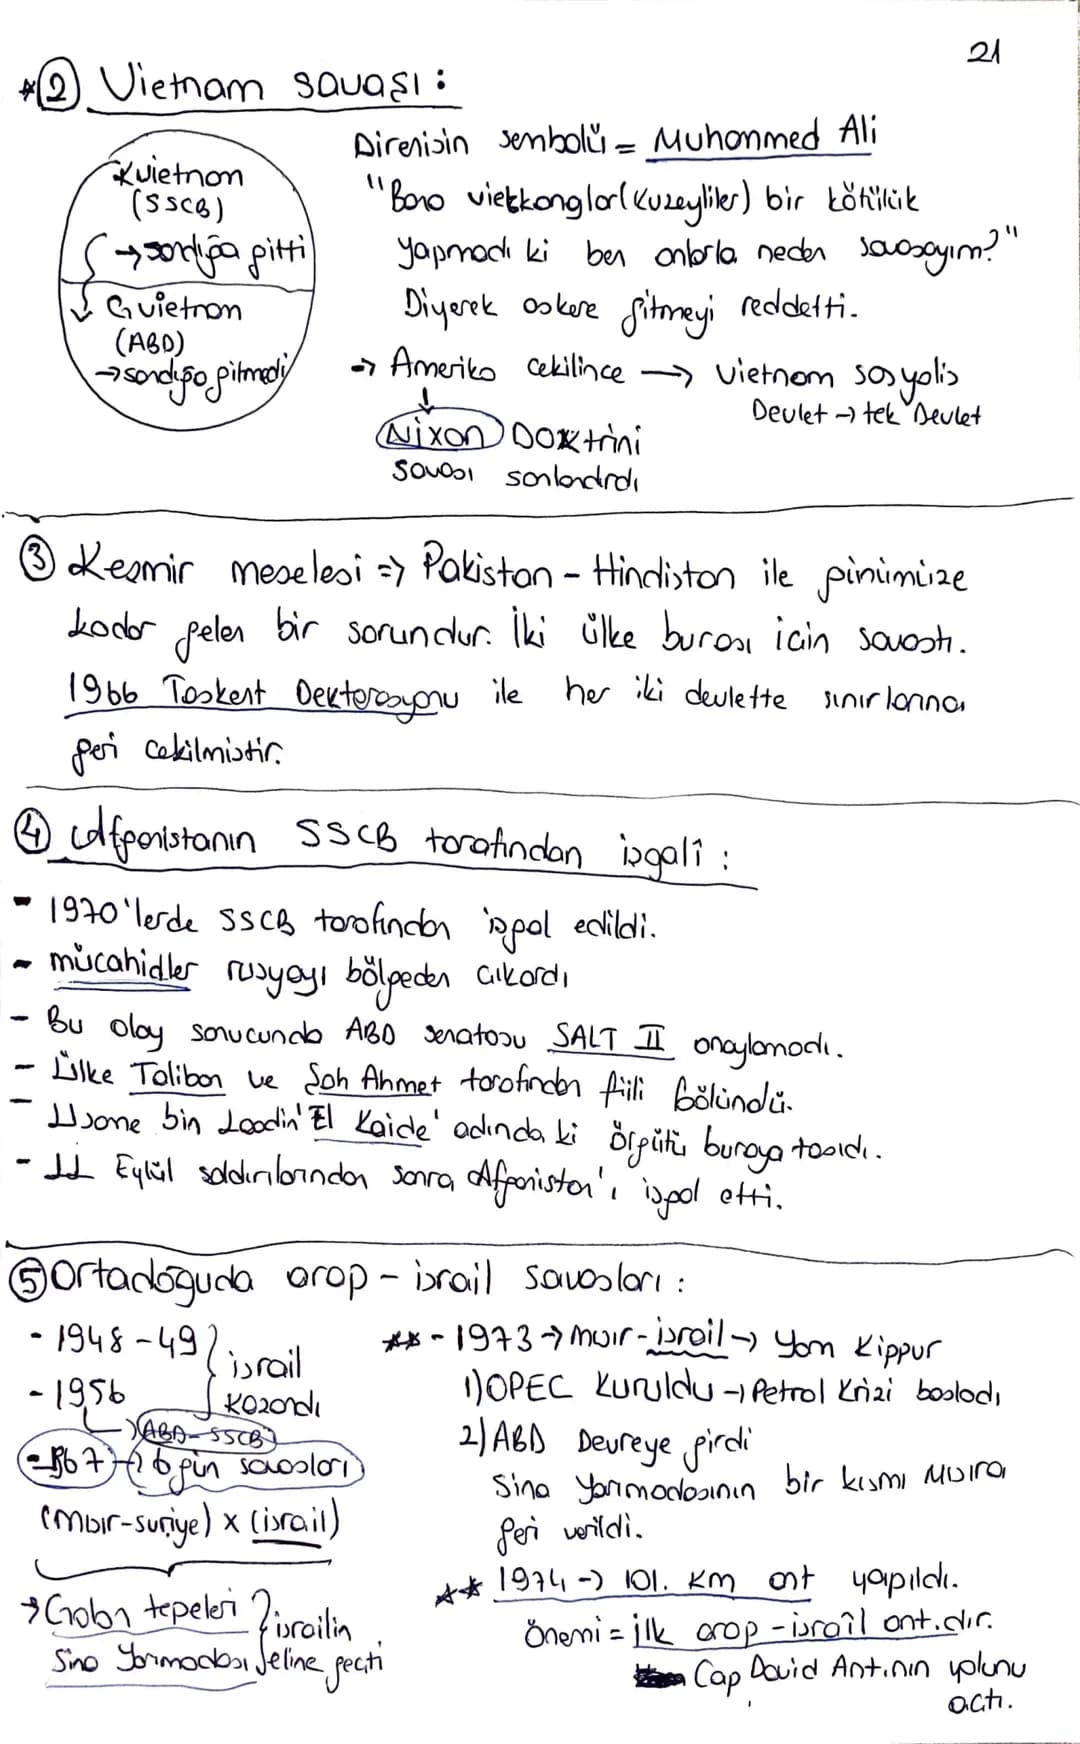 21
*② Vietnam savaşı :
K vietnam
(SSCB)
→ sandığa gitti
G vietnam
(ABD)
→ sandığa gitmedi
Direnişin sembolü = Muhammed Ali
"Bana vietkonglar (Kuzeyliler) bir kötülük
yapmadı ki ben onlarla neden savaşayım?"
Diyerek askere gitmeyi reddetti.
→ Amerika çekilince → vietnam sosyalis
Devlet → tek Devlet
↓
Nixon Doktrini
savaşı sonlandırdı
③ Keşmir meselesi => Pakistan - Hindistan ile günümüze
kadar gelen bir sorundur. İki ülke burası için savaştı.
1966 Taşkent Deklerasyonu ile her iki devlette sınırlarına
geri çekilmiştir.
④ Afganistanın SSCB tarafından işgali :
- 1970'lerde SSCB tarafından işgal edildi.
- mücahidler rusyayı bölgeden çıkardı
- Bu olay sonucunda ABD senatosu SALT II onaylamadı.
- Ülke Taliban ve Şah Ahmet tarafından fiili bölündü.
- Usame bin Laadin 'El Kaide' adında ki örgütü buraya taşıdı.
- 11 Eylül saldırılarından sonra Afganistan'ı işgal etti.
⑤ Ortadoğuda arap - israil savaşları :
- 1948 - 49
- 1956
israil
kazandı
→ ABD - SSCB
- 1967 → 6 gün savaşları
(Mısır-suriye) x (israil)
→ Golan tepeleri
Sina Yarımadası
israilin
eline geçti
** - 1973 → mısır - israil → Yom Kippur
1) OPEC Kuruldu → Petrol Krizi başladı
2) ABD Devreye girdi
Sina Yarımadasının bir kısmı Mısıra
geri verildi.
** 1974 → 101. km ant yapıldı.
Önemi = ilk arap - israil ant.dır.
Cap David Ant.nın yolunu
açtı.